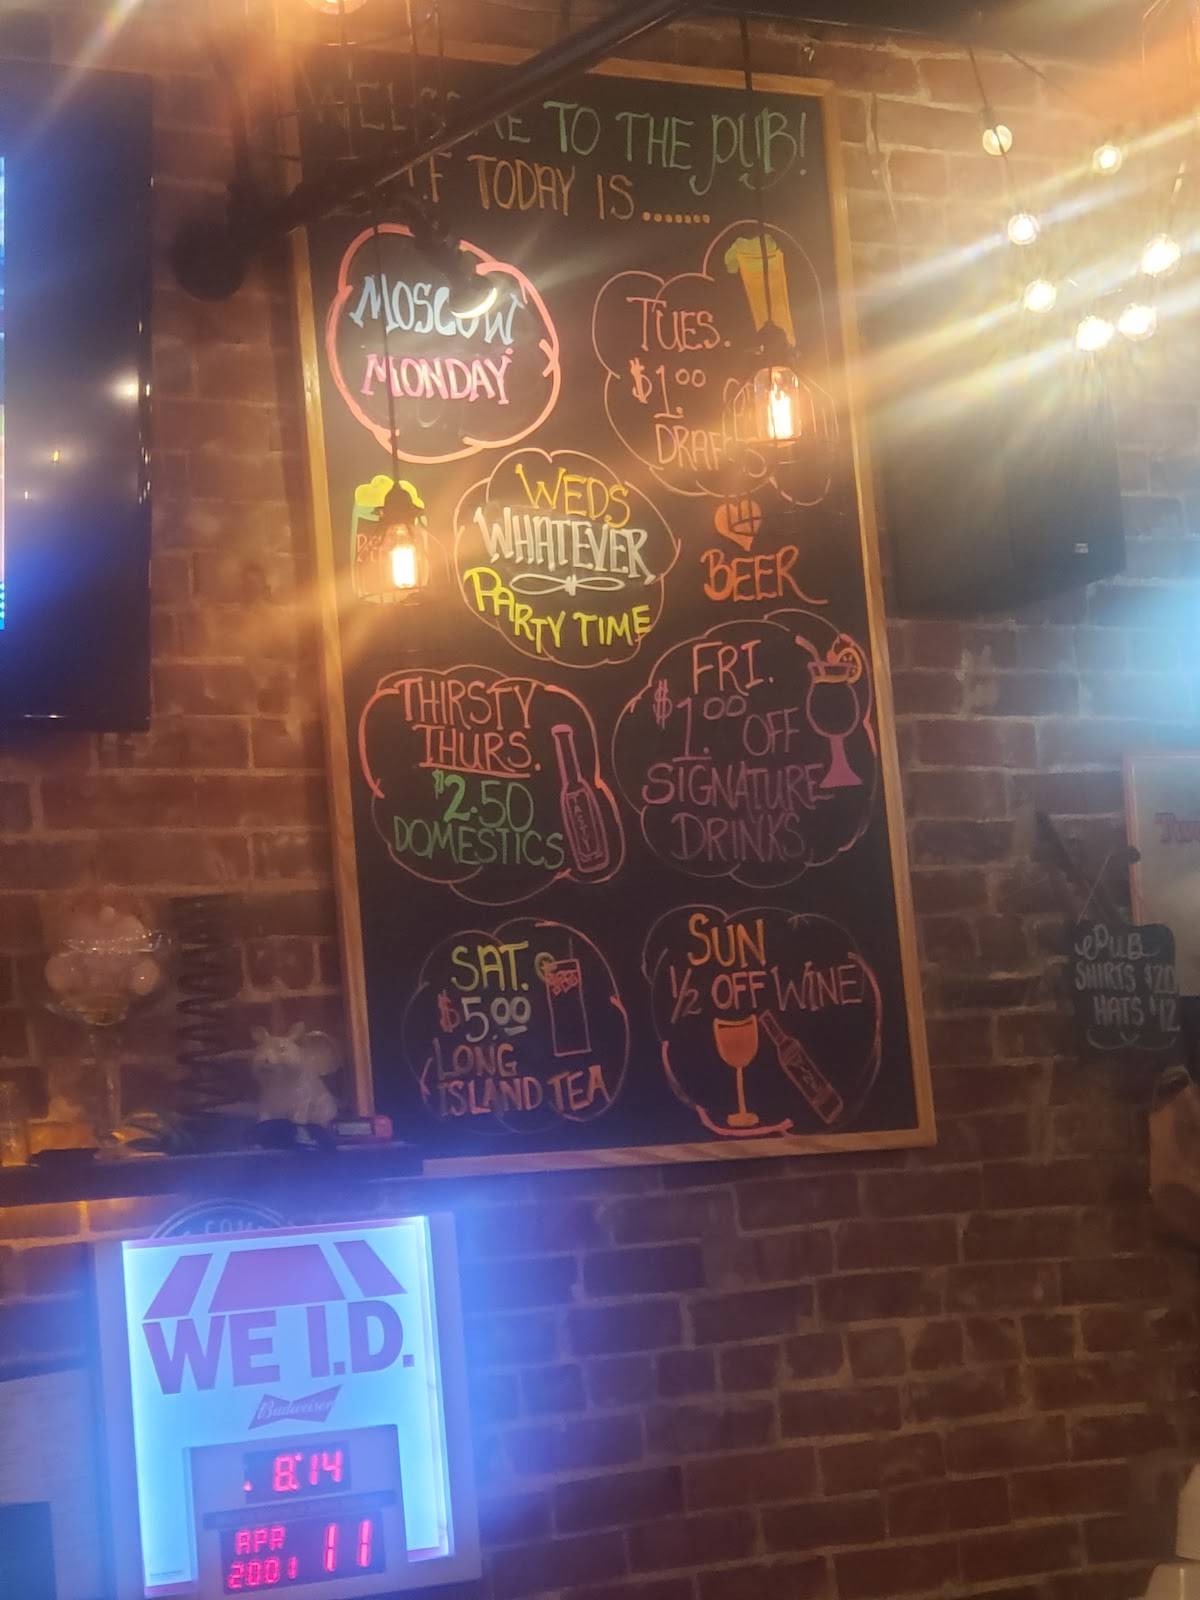 WELCOME TO THE PUB!
IF TODAY IS.......
MOSCOW
MONDAY
TUES.
$1.00
DRAFTS
WEDS
WHATEVER
PARTY TIME
BEER
THIRSTY
THURS.
$2.50
DOMESTICS
FRI.
$1.00 OFF
SIGNATURE
DRINKS
SAT.
$5.00
LONG
ISLAND TEA
SUN
1/2 OFF WINE
PUB
SHIRTS $20
HATS $12
WE I.D.
Budweiser
8:14
APR 11
2001